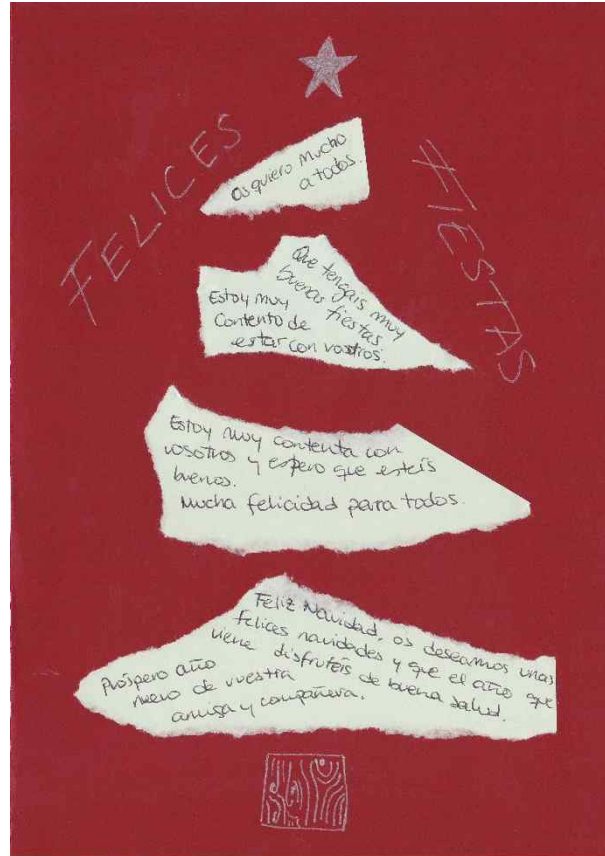 FELICES
FIESTAS
Os quiero mucho
a todos.
Que tengais muy
buenas fiestas
Estoy muy
contento de
estar con vostros.
Estoy muy contenta con
vosotros y espero que esteís
buenos.
Mucha felicidad para todos.
Feliz Navidad, os deseamos unas
felices navidades y que el año que
viene disfrutéis de buena salud.
Próspero año
nuevo de vuestra
amiga y compañera.